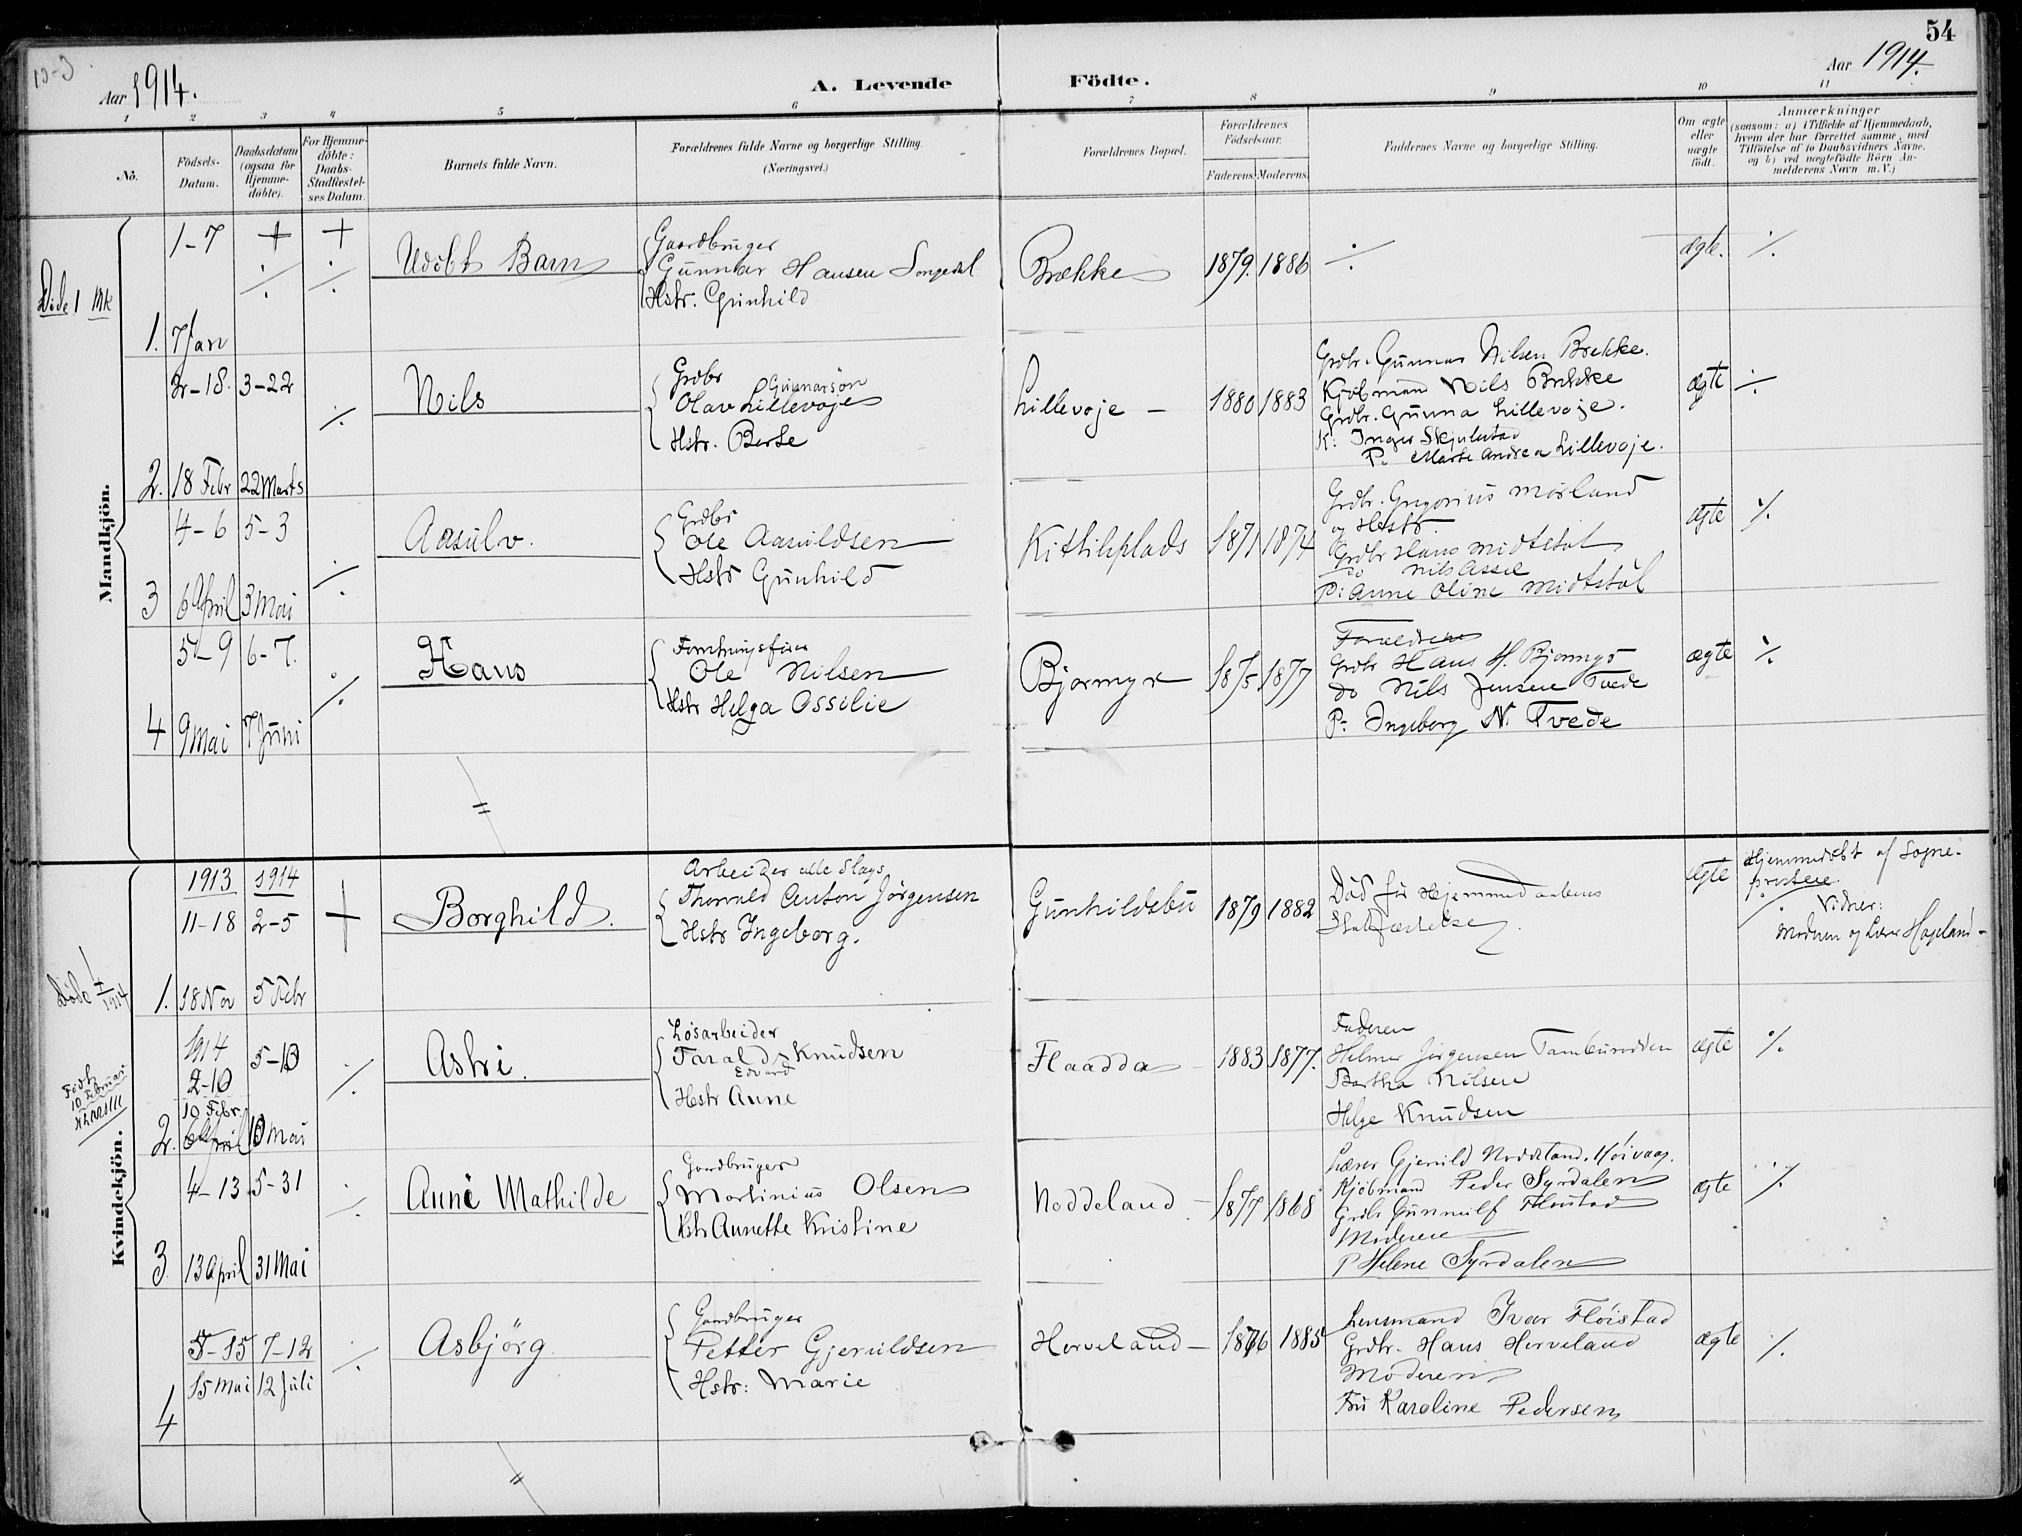 54
10-3
Aar 1914.
A. Levende Födte.
Aar 1914.
1 2 3 4 5 6 7 8 9 10 11
No.
Födsels-
Datum.
Daabsdatum
(ogsaa for
Hjemme-
döbte).
For Hjemme-
döbte:
Daabs-
Stadfæstel-
ses Datum.
Barnets fulde Navn.
Forældrenes fulde Navne og borgerlige Stilling.
(Næringsvei.)
Forældrenes Bopæl.
Forældrenes
Födselsaar.
Faderens. Moderens.
Faddernes Navne og borgerlige Stilling.
Om ægte
eller
uægte
födt.
Anmærkninger
(saasom: a) i Tilfælde af Hjemmedaab,
hvem der har forrettet samme, med
Tilföielse af to Daabsvidners Navne,
og b) ved uægtefödte Börn An-
melderens Navn m.V.)
Mandkjön.
Døde 1 Mk
1-7 + +
Udøbt Barn
Gaardbruger
Gunnar Hansen Songedal
Hstr. Gunhild
Brække
1879. 1886
÷
ægte. ÷
1. 7 Jan
2-18. 3-22
÷
Nils
Grdbr
Gunnarsøn
Olav Lillevoje
Hstr. Berte
Lillevoje -
1880 1883
Grdbr. Gunnar Nilsen Brekke.
Kjøbmand Nils Brekke
Grdbr. Gunna Lillevoje.
K: Inger Skjulestad
P. Marte Andrea Lillevoje.
ægte ÷
2. 18 Febr 22 Marts
4-6 5-3
÷
Aasulv.
Grdbr
Ole Aasuldsen
Hstr Gunhild
Kittilsplads
1871 1874
Grdbr. Gregorius Mørland
og Hstr.
Grdbr Hans Midtstøl
do Nils Assev
P: Anne Oline Midtstøl
ægte ÷
3 6 April 3 Mai
5-9 6-7.
÷
Hans
Forretningsfører
Ole Nilsen
Hstr Helga Ossilie
Bjormyr
1875 1877
Forældrene
Grdbr Hans H. Bjormyr
do Nils Jensen Tvede
P: Ingeborg N. Tvede
ægte ÷
4 9 Mai 7 Juni
Kvindekjön.
1913 1914
11-18 2-5 +
Borghild.
Arbeider alle Slags
Thorvald Anton Jørgensen
Hstr Ingeborg.
Gunhildsbu
1879 1882
Død før Hjemmedaabens
Stadfæstelse
ægte
Hjemmedøbt af Sogne-
presten.
Vidner:
Moderen og Lærer Hageland-
Døde 1/1914
1. 18 Nov 5 Febr
1914
2-10
5-10
÷
Astri.
Løsarbeider
Tarald Knudsen
Edvard
Hstr Anne
Flaadda -
1883 1877.
Faderen
Helmer Jørgensen Tambursodden
Bertha Nilsen
Helge Knudsen
ægte ÷
Født
10 Februar
10 Febr.
2. 6 April 10 Mai
4-13 5-31
÷
Anne Mathilde
Gaardbruger
Martinius Olsen
Hstr Annette Kristine
Noddeland -
1877 1868
Lærer Gjeruld Noddeland. Høivaag.
Kjøbmand Peder Syrdalen
Grdbr Gunnulf Fløistad
Moderen
P Helene Syrdalen
ægte ÷
3. 13 April 31 Mai
5-15 7-12
÷
Asbjörg
Gaardbruger
Petter Gjeruldsen
Hstr: Marie
Herveland -
1876 1885
Lensmand Ivar Fløistad
Grdbr. Hans Herveland
Moderen
Fru Karoline Pedersen
ægte ÷
15 Mai 12 Juli
4